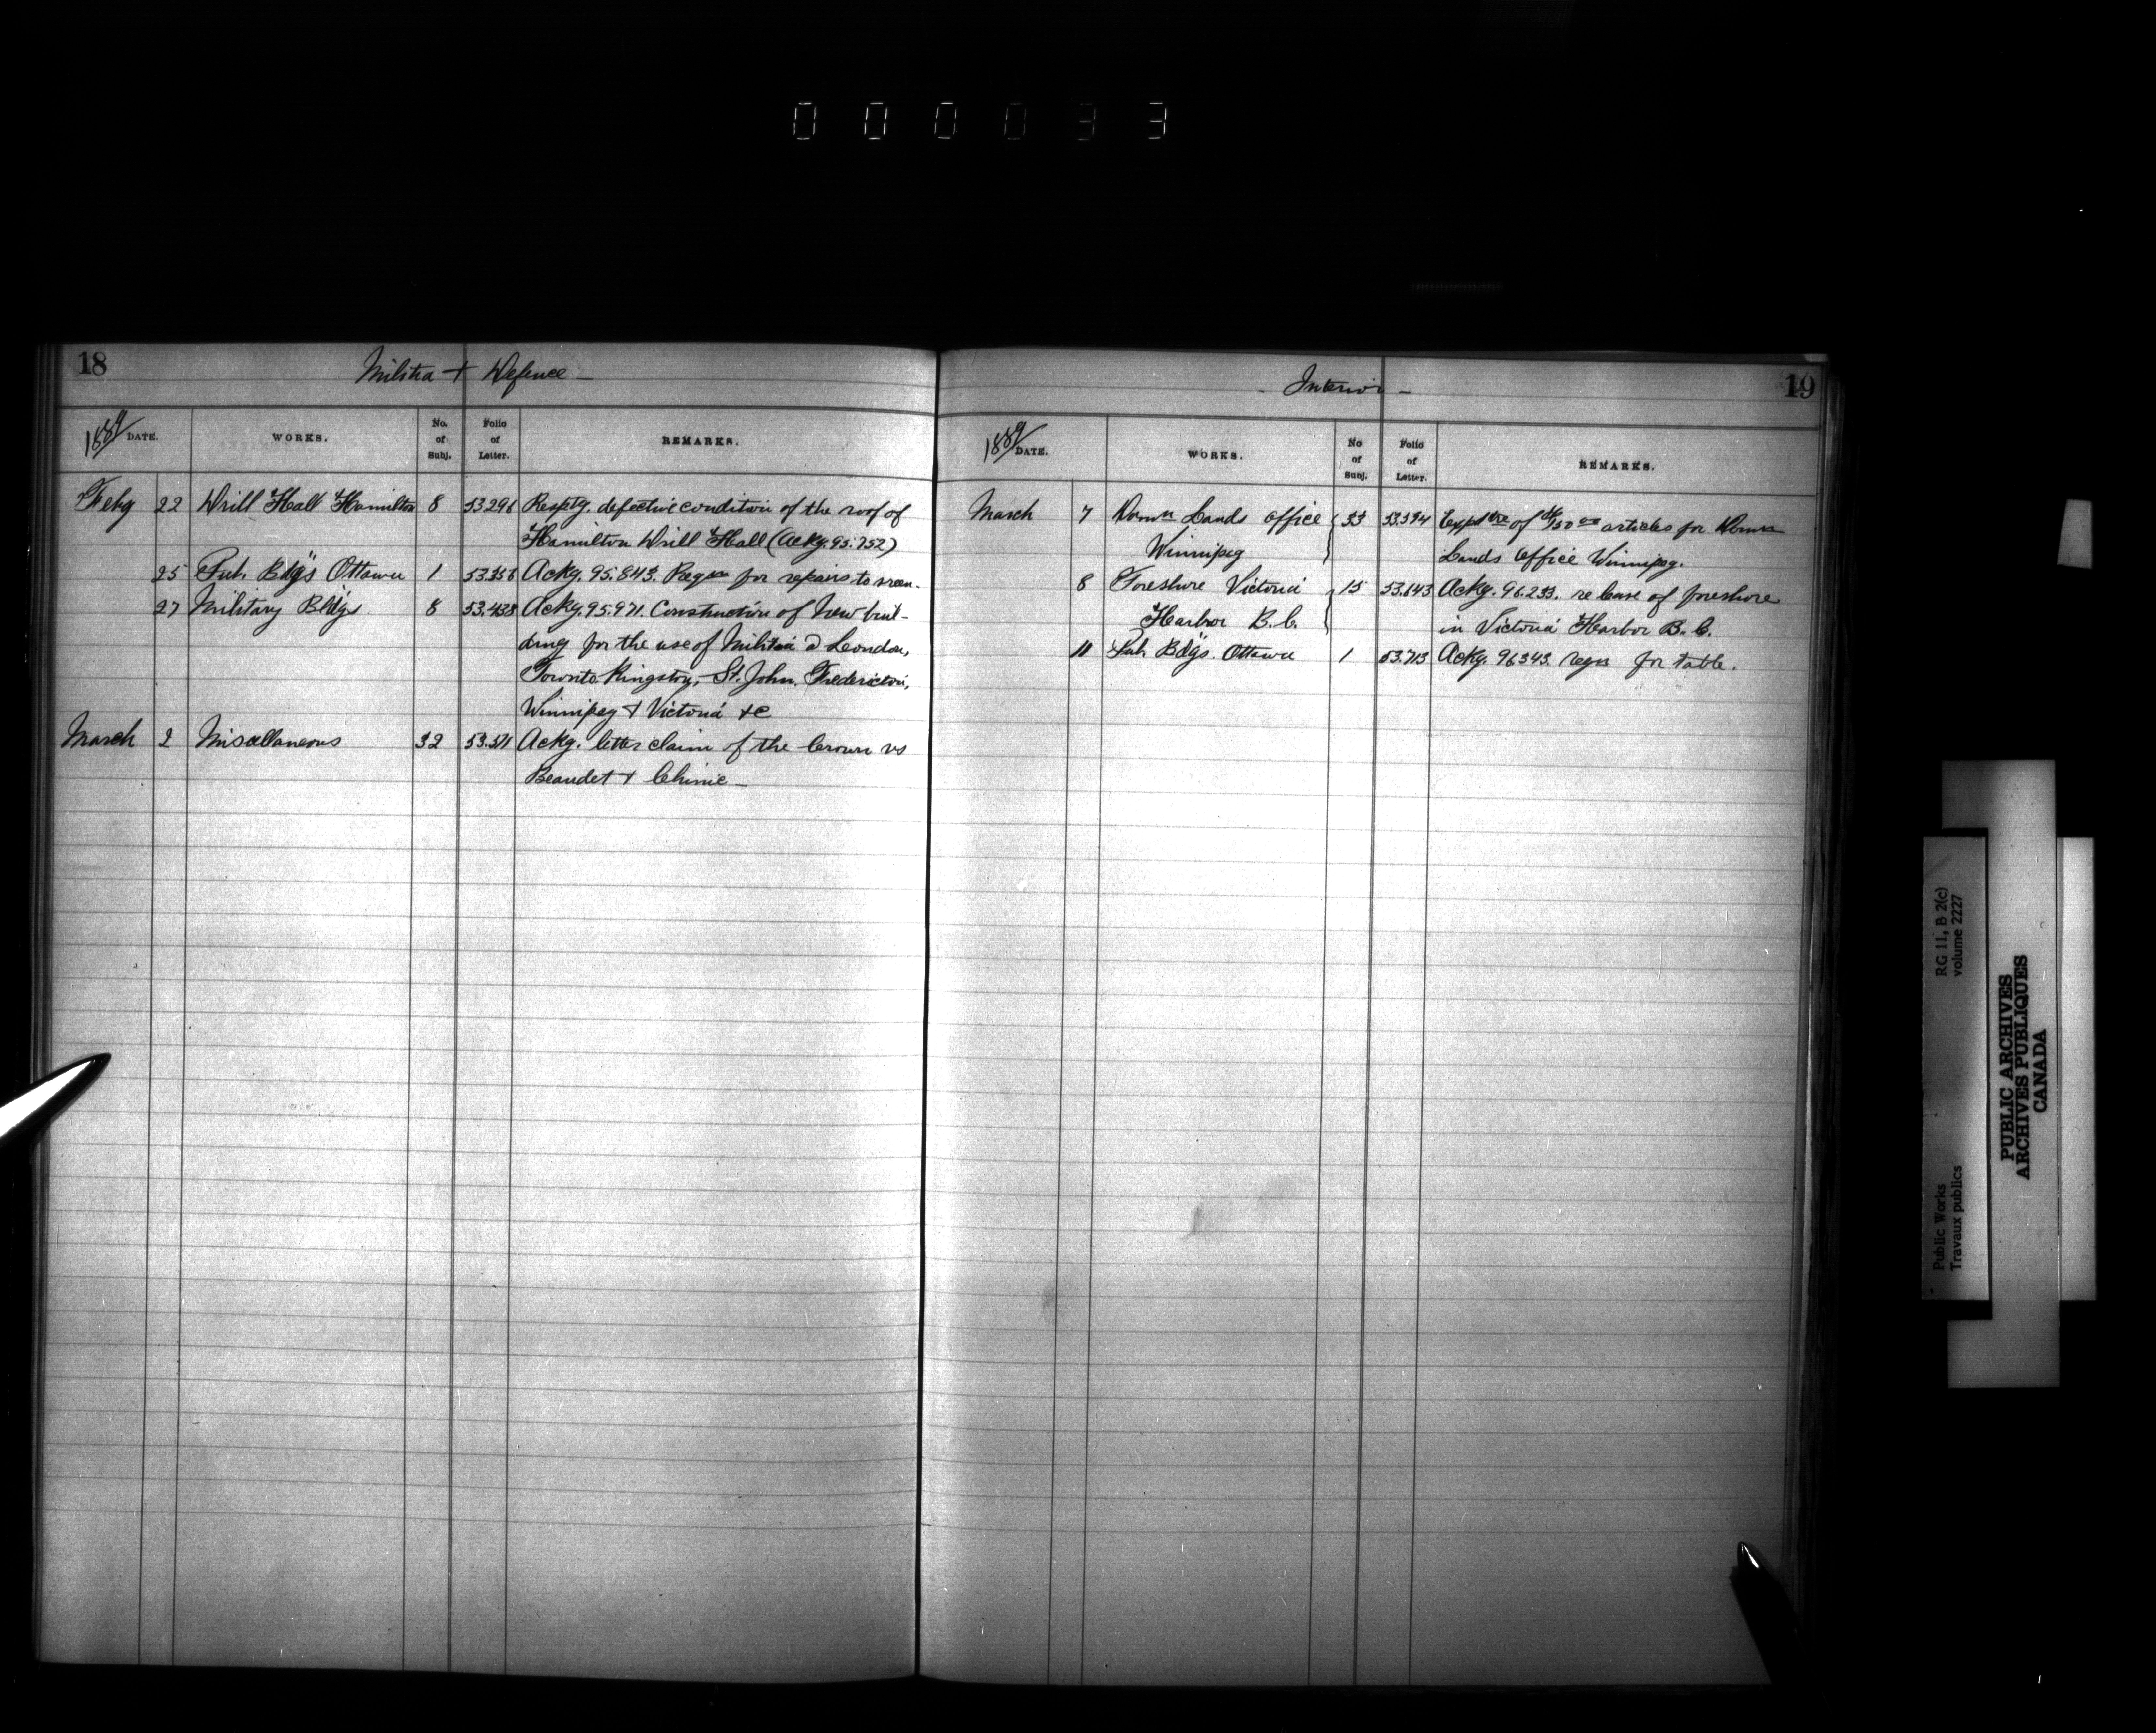 000033
18
Militia + Defence -
1889 DATE. WORKS. No. of Subj. Folio of Letter. REMARKS.
Feby 22 Drill Hall Hamilton 8 53296 Resptg. defective condition of the roof of
Hamilton Drill Hall (Ackg. 95.752)
25 Pub. Bdgs Ottawa 1 53.358 Ackg. 95.843. Reqn for repairs to
27 Military Bldgs 8 53.428 Ackg. 95.971. Construction of New buil-
ding for the use of Militia @ London,
Toronto Kingston, St. John. Fredericton,
Winnipeg + Victoria +c
March 2 Miscellaneous 32 53.511 Ackg. letter claim of the Crown vs
Beaudet + Chinic -
- Interior -
19
1889 DATE. WORKS. No of Subj. Folio of Letter. REMARKS.
March 7 Domn Lands Office 33 53.594 Exptre of $150.00 articles for Domn
Winnipeg Lands Office Winnipeg.
8 Foreshore Victoria 15 53.643 Ackg. 96.233. re lease of foreshore
Harbor B.C. in Victoria Harbor B.C.
11 Pub. Bdgs. Ottawa 1 53.713 Ackg. 96343. reqn for table.
RG 11, B 2(c)
volume 2227
Public Works
Travaux publics
PUBLIC ARCHIVES
ARCHIVES PUBLIQUES
CANADA